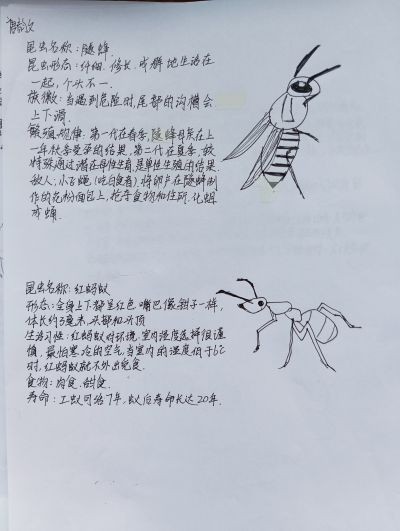 昆虫名称：隧蜂
昆虫形态：纤细、修长、成群地生活在
一起，个头不一.
族徽：当遇到危险时，尾部的沟槽会
上下滑.
繁殖规律：第一代在春季，隧蜂的妈在上
一年秋季受孕的结果，第二代在夏季，较
特殊通过潜在母性生育，是单性生殖的结果.
敌人：小飞蝇(吃白食者)将卵产在隧蜂制
作的花粉面包上，抢夺食物和住所.化蛹
成蛹.
昆虫名称：红蚂蚁
形态：全身上下都呈红色，嘴巴像钳子一样，
体长约3毫米，头部和头顶
生活习性：红蚂蚁对环境、室内湿度选择很谨
慎，最怕寒冷的空气，当室内的温度低于6℃
时，红蚂蚁就不外出觅食.
食物：肉食、甜食.
寿命：工蚁可活7年，蚁后寿命长达20年.